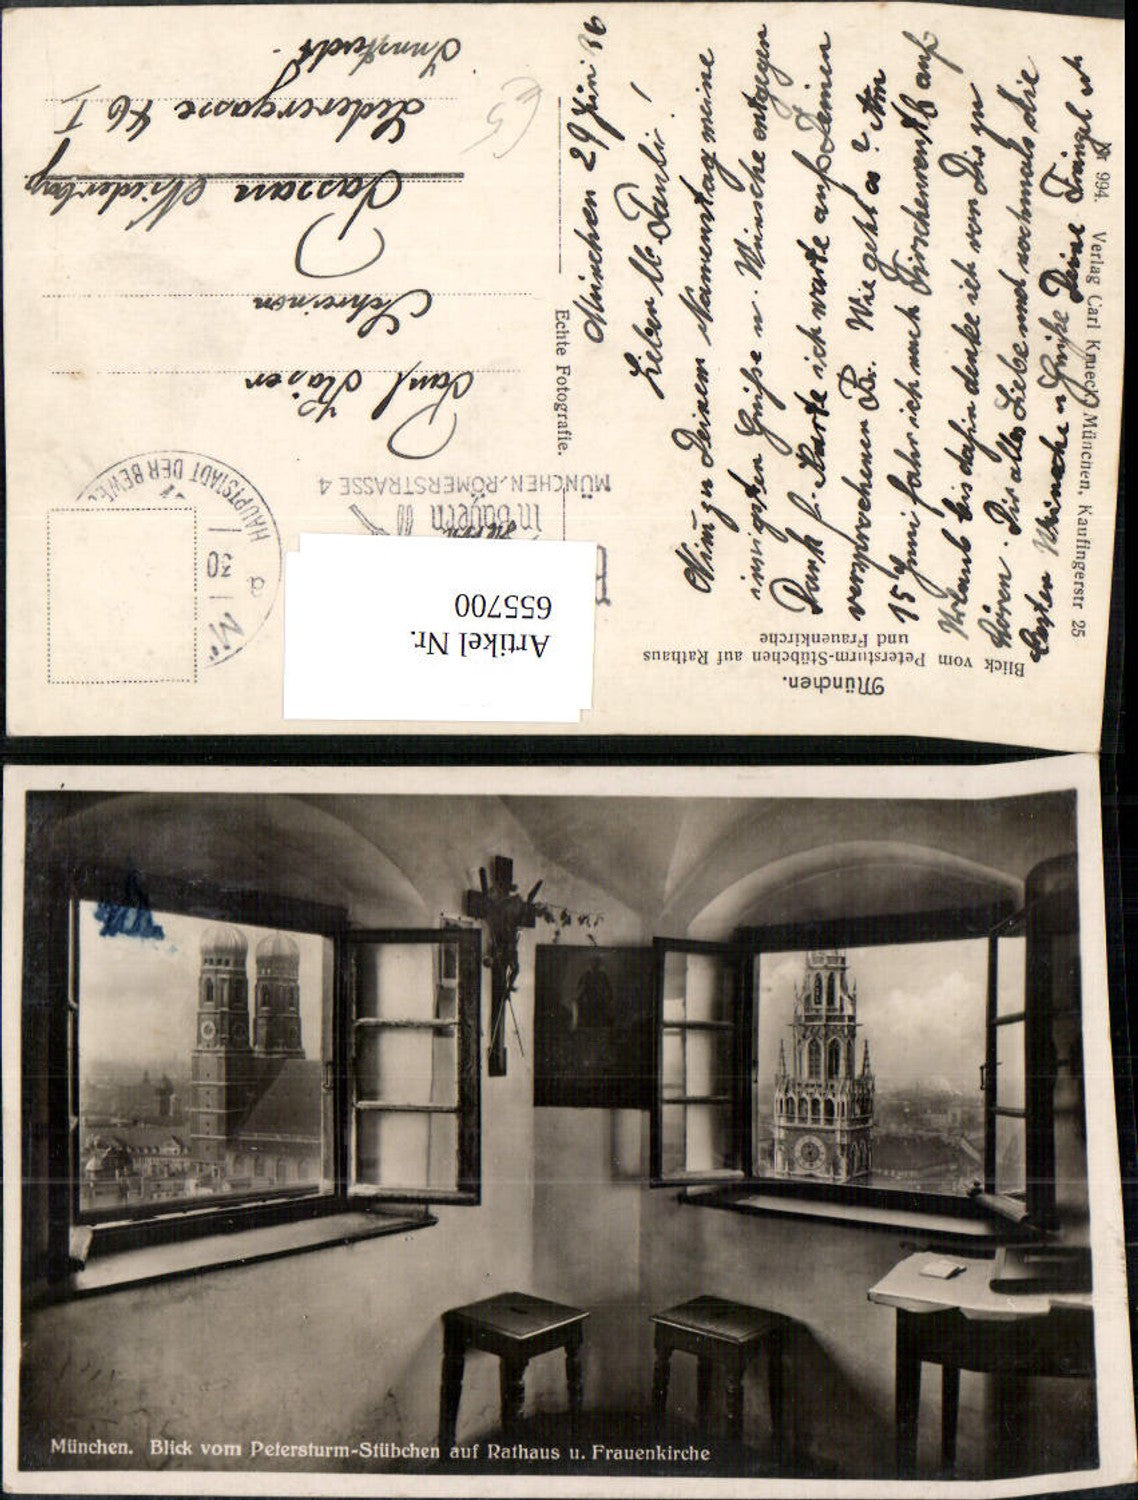 München.
Blick vom Petersturm-Stübchen auf Rathaus
und Frauenkirche
Artikel Nr.
655700
HAUPTSTADT DER BEWE
30
a
in Bayern
MÜNCHEN, RÖMERSTRASSE 4
Echte Fotografie.
Nr 994. Verlag Carl Knueck, München, Kaufingerstr 25
München 29 Juni 36
Lieber Paul!
Nimm zu Deinem Namenstag meine
innigsten Grüße u. Wünsche entgegen
Dank f. Karte ich warte auf Deinen
versprochenen Br. Wie geht es? Am
15 Juni fahr ich nach auf
Urlaub bis dahin denke ich von Dir zu
hören. Dir alles Liebe und nochmals die
besten Wünsche u Grüße Deine
Paul
Schreiner
Passau Niederbay
Ledergasse 46 I
Innstadt.
München. Blick vom Petersturm-Stübchen auf Rathaus u. Frauenkirche